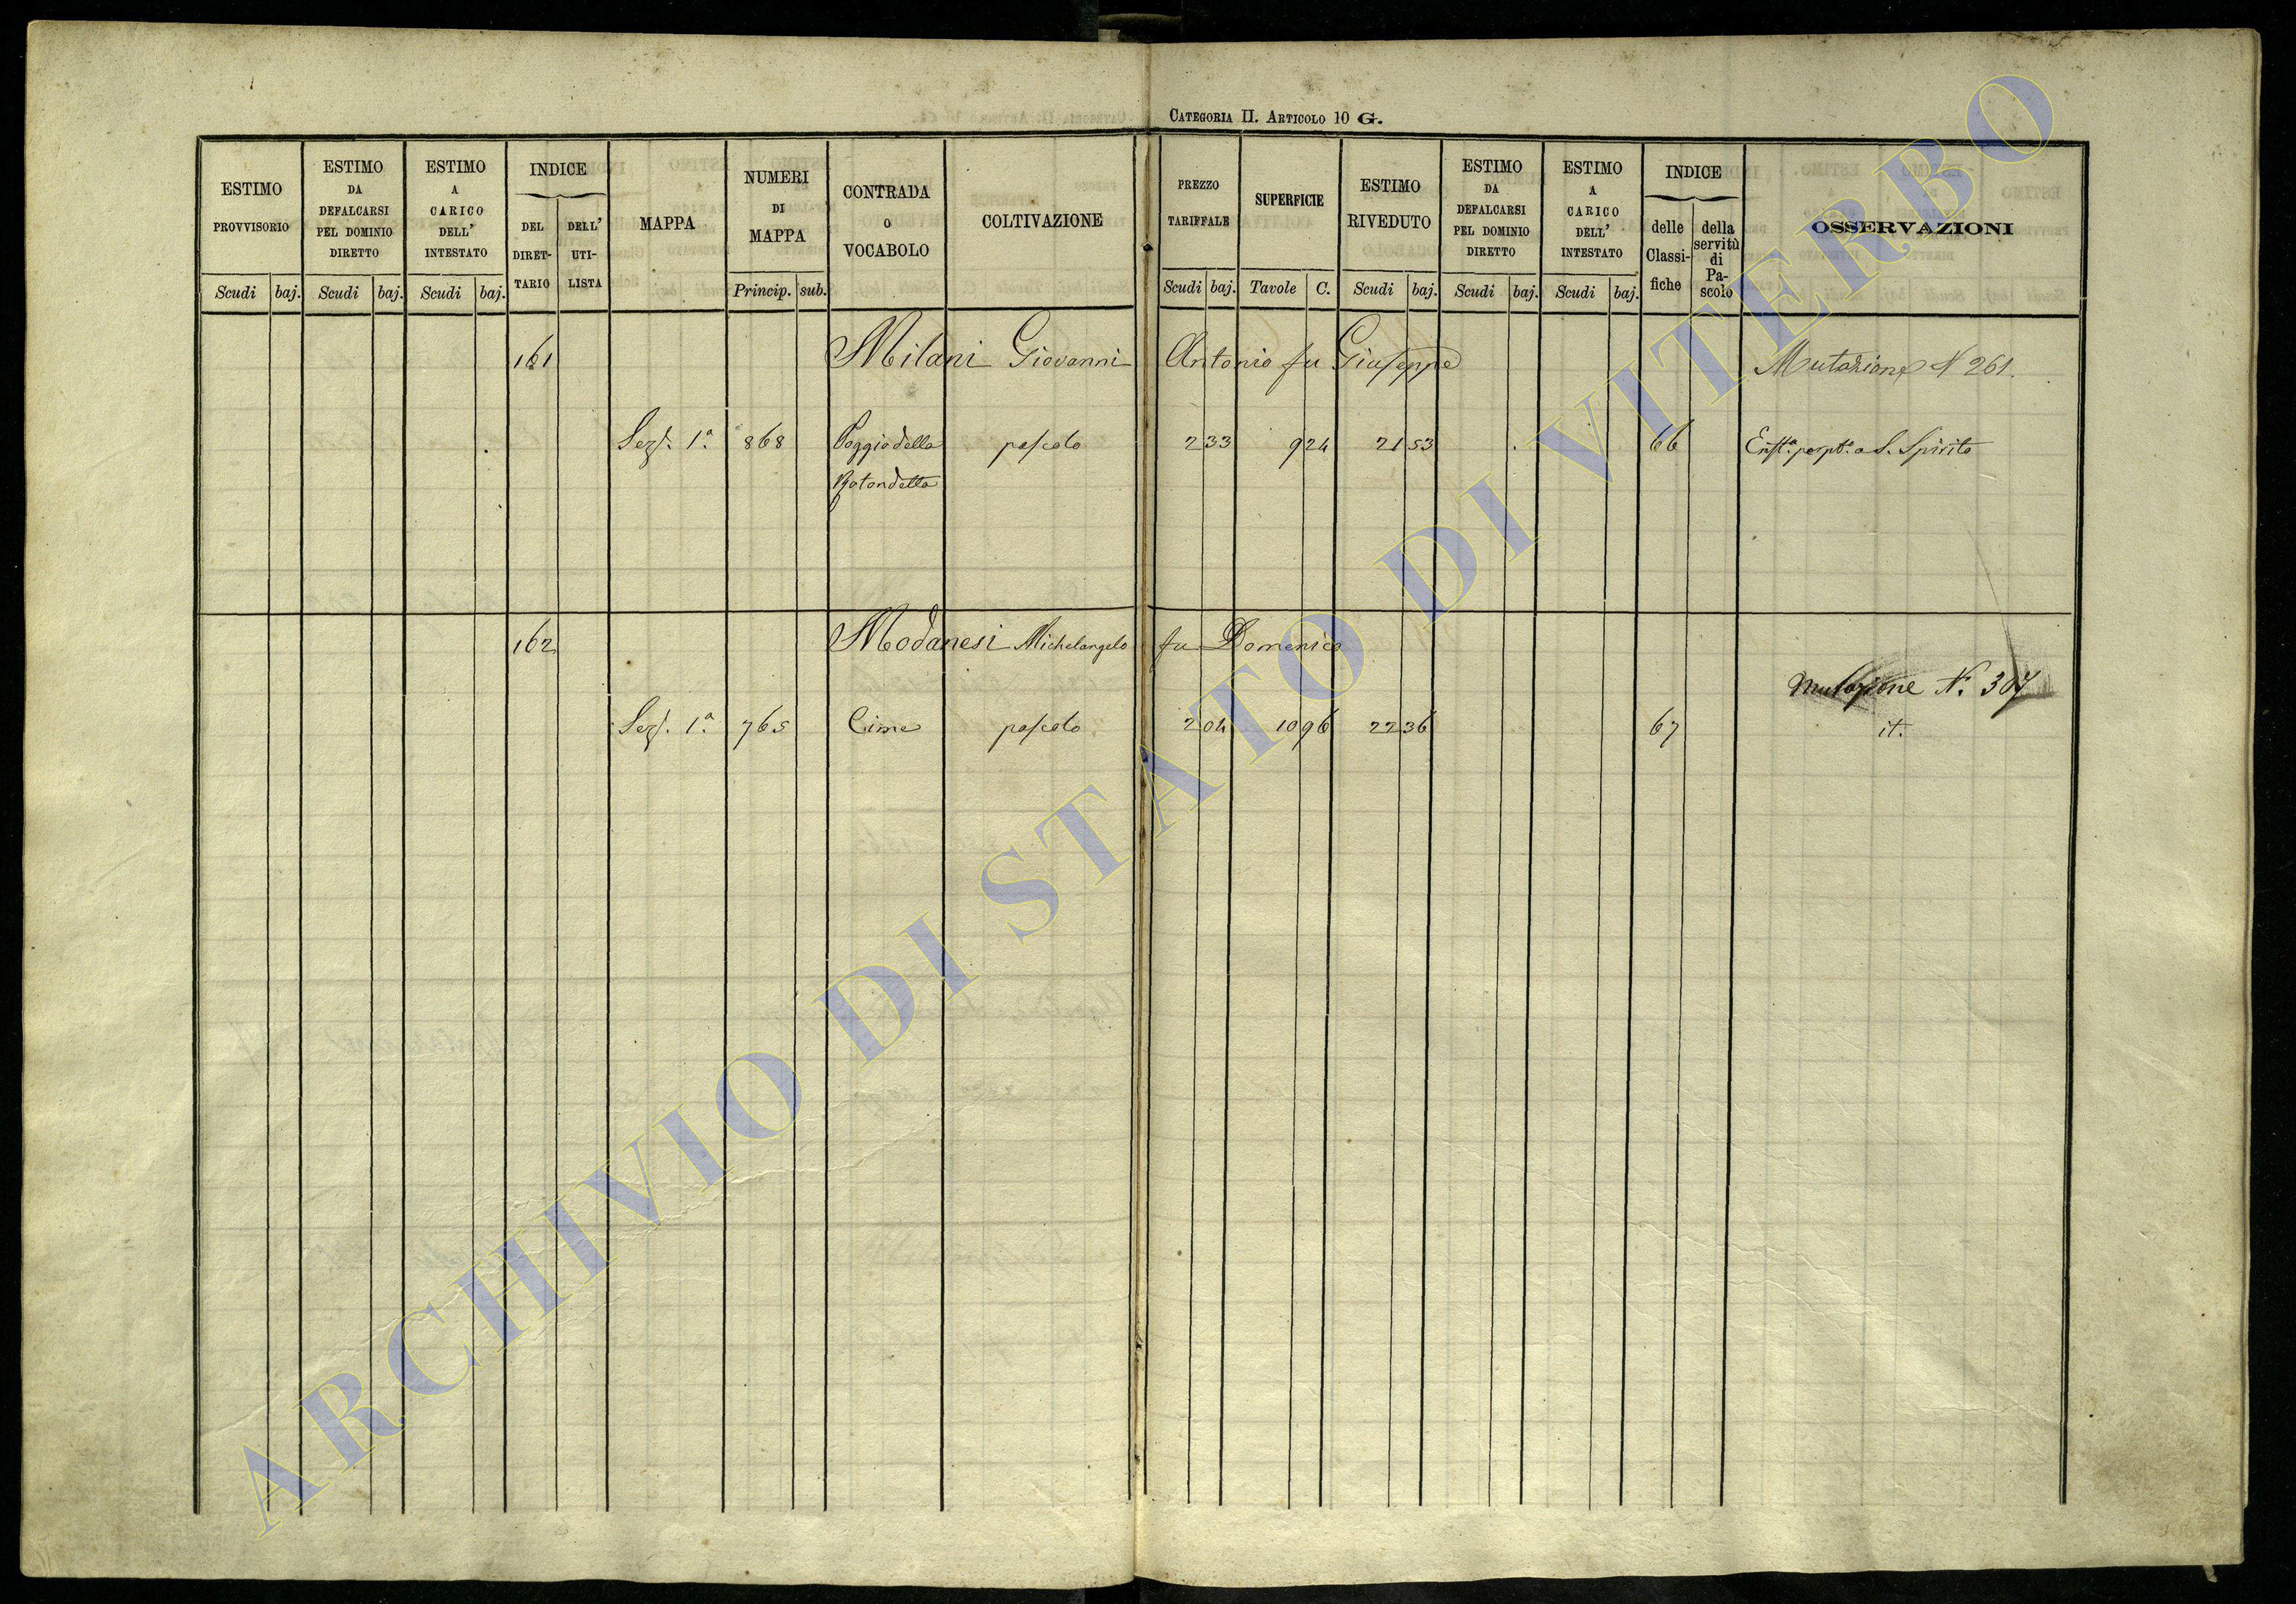 CATEGORIA II. ARTICOLO 10 G.
ESTIMO PROVVISORIO
ESTIMO DA DEFALCARSI PEL DOMINIO DIRETTO
ESTIMO A CARICO DELL' INTESTATO
INDICE
DEL DIRET-TARIO
DELL' UTI-LISTA
MAPPA
NUMERI DI MAPPA
CONTRADA O VOCABOLO
COLTIVAZIONE
PREZZO TARIFFALE
SUPERFICIE
ESTIMO RIVEDUTO
ESTIMO DA DEFALCARSI PEL DOMINIO DIRETTO
ESTIMO A CARICO DELL' INTESTATO
INDICE
delle Classi-fiche
della servitù di Pa-scolo
OSSERVAZIONI
Scudi baj. Scudi baj. Scudi baj. Princip. sub. Scudi baj. Tavole C. Scudi baj. Scudi baj. Scudi baj.
161 Milani Giovanni Antonio fu Giuseppe Mutazione N 261.
Sez. 1.a 868 Poggio della pascolo 2 33 9 24 21 53 66 Enft.a perpt.a a S. Spirito
Rotondella
162 Modanesi Michelangelo fu Domenico
Mutazione N. 307
Sez. 1.a 765 Cime pascolo 2 04 10 96 22 36 67 it.
ARCHIVIO DI STATO DI VITERBO